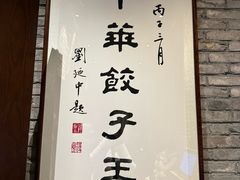 丙子三月
中華餃子王
劉延中題